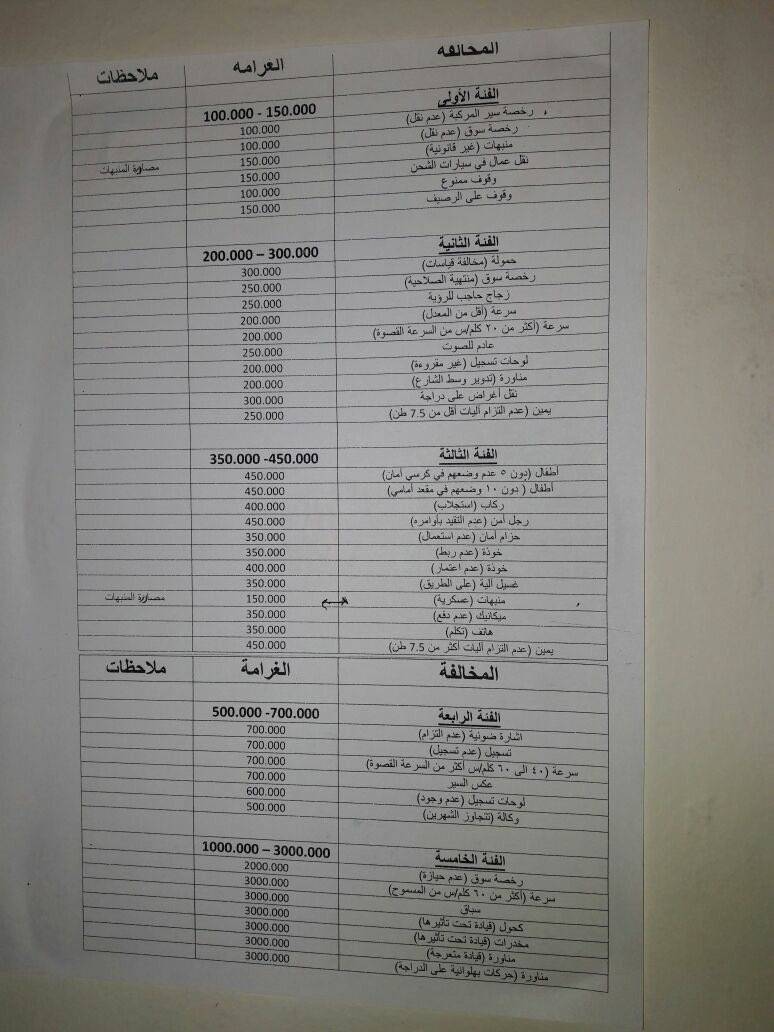 المخالفه الغرامه ملاحظات
الفئة الأولى 100.000 - 150.000
رخصة سير المركبة (عدم نقل) 100.000
رخصة سوق (عدم نقل) 100.000
منبهات (غير قانونية) 150.000 مصادرة المنبهات
نقل عمال في سيارات الشحن 150.000
وقوف ممنوع 100.000
وقوف على الرصيف 150.000
الفئة الثانية 200.000 – 300.000
حمولة (مخالفة قياسات) 300.000
رخصة سوق (منتهية الصلاحية) 250.000
زجاج حاجب للرؤية 250.000
سرعة (أقل من المعدل) 200.000
سرعة (أكثر من ٢٠ كلم/س من السرعة القصوة) 200.000
عادم للصوت 250.000
لوحات تسجيل (غير مقروءة) 200.000
مناورة (تدوير وسط الشارع) 200.000
نقل أغراض على دراجة 300.000
يمين (عدم التزام آليات أقل من 7.5 طن) 250.000
الفئة الثالثة 350.000 -450.000
أطفال (دون ٥ عدم وضعهم في كرسي أمان) 450.000
أطفال ( دون ١٠ وضعهم في مقعد أمامي) 450.000
ركاب (استجلاب) 400.000
رجل أمن (عدم التقيد بأوامره) 450.000
حزام أمان (عدم استعمال) 350.000
خوذة (عدم ربط) 350.000
خوذة (عدم اعتمار) 400.000
غسيل آلية (على الطريق) 350.000
منبهات (عسكرية) 150.000 مصادرة المنبهات
ميكانيك (عدم دفع) 350.000
هاتف (تكلم) 350.000
يمين (عدم التزام آليات أكثر من 7.5 طن) 450.000
المخالفة الغرامة ملاحظات
الفئة الرابعة 500.000 -700.000
اشارة ضوئية (عدم التزام) 700.000
تسجيل (عدم تسجيل) 700.000
سرعة (٤٠ الى ٦٠ كلم/س أكثر من السرعة القصوة) 700.000
عكس السير 700.000
لوحات تسجيل (عدم وجود) 600.000
وكالة (تتجاوز الشهرين) 500.000
الفئة الخامسة 1000.000 – 3000.000
رخصة سوق (عدم حيازة) 2000.000
سرعة (أكثر من ٦٠ كلم/س من المسموح) 3000.000
سباق 3000.000
كحول (قيادة تحت تأثيرها) 3000.000
مخدرات (قيادة تحت تأثيرها) 3000.000
مناورة (قيادة متعرجة) 3000.000
مناورة (حركات بهلوانية على الدراجة) 3000.000